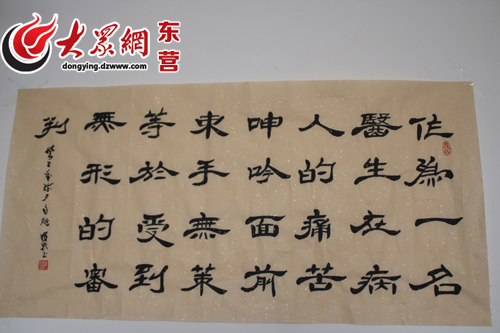 大眾網
东营
dongying.dzwww.com
作為一名
醫生在病
人的痛苦
呻吟面前
束手無策
等於受到
無形的審
判